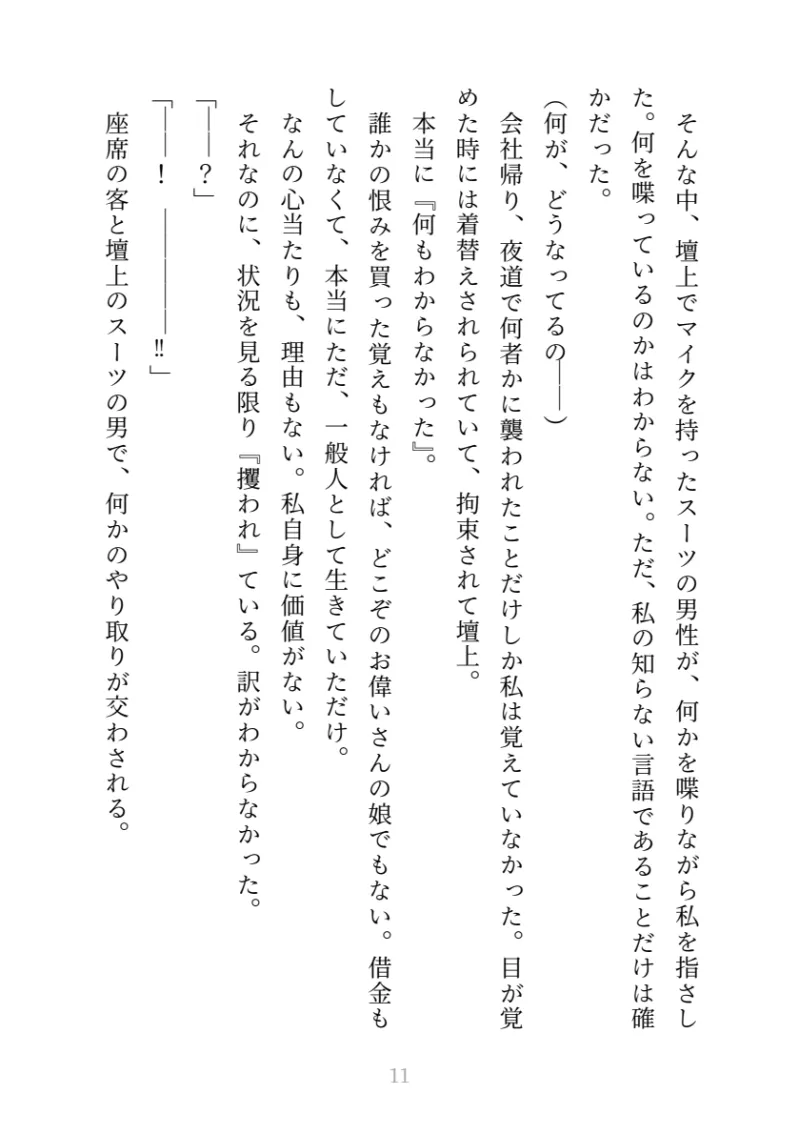 そんな中、壇上でマイクを持ったスーツの男性が、何かを喋りながら私を指さし
た。何を喋っているのかはわからない。ただ、私の知らない言語であることだけは確
かだった。
（何が、どうなってるの――）
　会社帰り、夜道で何者かに襲われたことだけしか私は覚えていなかった。目が覚
めた時には着替えされられていて、拘束されて壇上。
　本当に『何もわからなかった』。
　誰かの恨みを買った覚えもなければ、どこぞのお偉いさんの娘でもない。借金も
していなくて、本当にただ、一般人として生きていただけ。
　なんの心当たりも、理由もない。私自身に価値がない。
　それなのに、状況を見る限り『攫われ』ている。訳がわからなかった。
「――？」
「――！　――――――‼」
　座席の客と壇上のスーツの男で、何かのやり取りが交わされる。
11